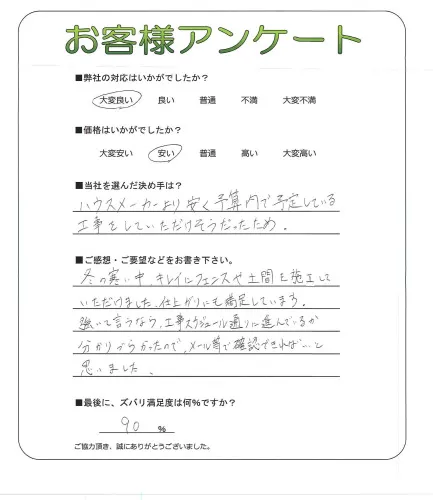 お客様アンケート
■弊社の対応はいかがでしたか？
大変良い 良い 普通 不満 大変不満
■価格はいかがでしたか？
大変安い 安い 普通 高い 大変高い
■当社を選んだ決め手は？
ハウスメーカーより安く予算内で予定している
工事をしていただけそうだったため。
■ご感想・ご要望などをお書き下さい。
冬の寒い中、キレイにフェンスや土間を施工して
いただけました。仕上がりにも満足しています。
強いて言うなら、工事スケジュール通りに進んでいるか
分かりづらかったので、メール等で確認できればいいと
思いました。
■最後に、ズバリ満足度は何%ですか？
90 %
ご協力頂き、誠にありがとうございました。